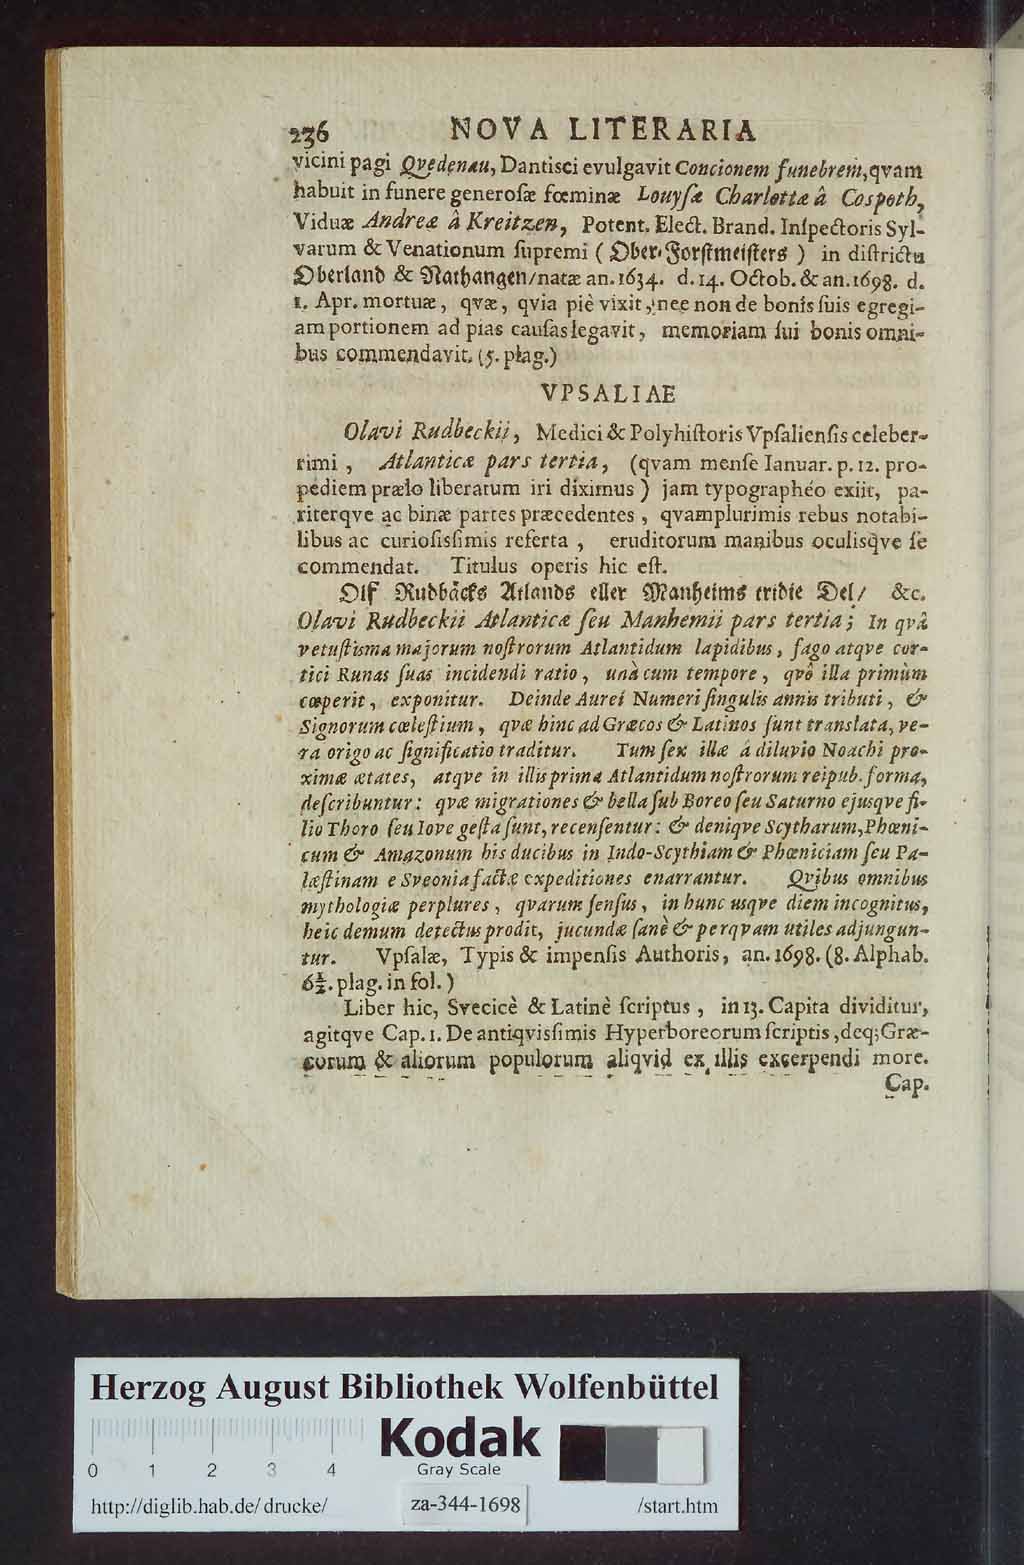 236 NOVA LITERARIA
vicini pagi Qvedenau, Dantisci evulgavit Concionem funebrem, qvam
habuit in funere generoſæ fœminæ Louyſæ Charlottæ â Coſpoth,
Viduæ Andreæ â Kreitzen, Potent. Elect. Brand. Inſpectoris Syl-
varum & Venationum ſupremi ( Ober-Forſtmeiſters ) in diſtrictu
Oberland & Nathangen/natæ an. 1634. d. 14. Octob. & an. 1698. d.
1. Apr. mortuæ, qvæ, qvia piè vixit, nec non de bonis ſuis egregi-
am portionem ad pias cauſas legavit, memoriam ſui bonis omni-
bus commendavit. (5. plag.)
VPSALIAE
Olavi Rudbeckii, Medici & Polyhiſtoris Vpſalienſis celeber-
rimi, Atlanticæ pars tertia, (qvam menſe Ianuar. p. 12. pro-
pediem prælo liberatum iri diximus) jam typographéo exiit, pa-
riterqve ac binæ partes præcedentes, qvamplurimis rebus notabi-
libus ac curioſiſſimis referta, eruditorum manibus oculisq́ve ſe
commendat. Titulus operis hic eſt.
Olf Rudbäcks Atlands eller Manheims tridie Del/ &c.
Olavi Rudbeckii Atlanticæ ſeu Manhemii pars tertia; In qvâ
vetuſtisma majorum noſtrorum Atlantidum lapidibus, fago atqve cor-
tici Runas ſuas incidendi ratio, unà cum tempore, qvô illa primùm
cœperit, exponitur. Deinde Aurei Numeri ſingulis annis tributi, &
Signorum cœleſtium, qvæ hinc ad Græcos & Latinos ſunt translata, ve-
ra origo ac ſignificatio traditur. Tum ſex illæ á diluvio Noachi pro-
ximæ ætates, atqve in illis prima Atlantidum noſtrorum reipub. forma,
deſcribuntur: qvæ migrationes & bella ſub Boreo ſeu Saturno ejusqve fi-
lio Thoro ſeu Iove geſta ſunt, recenſentur: & deniqve Scytharum, Phœni-
cum & Amazonum his ducibus in Indo-Scythiam & Phœniciam ſeu Pa-
læſtinam e Sveonia factæ expeditiones enarrantur. Qvibus omnibus
mythologiæ perplures, qvarum ſenſus, in hunc usqve diem incognitus,
heic demum detectus prodit, jucundæ ſanè & perqvam utiles adjungun-
tur. Vpſalæ, Typis & impenſis Authoris, an. 1698. (8. Alphab.
6½. plag. in fol.)
Liber hic, Svecicè & Latinè ſcriptus, in 13. Capita dividitur,
agitqve Cap. 1. De antiqviſſimis Hyperboreorum ſcriptis, deq; Græ-
corum & aliorum populorum aliqvid ex illis excerpendi more.
Cap.
Herzog August Bibliothek Wolfenbüttel
Kodak
0 1 2 3 4 Gray Scale
http://diglib.hab.de/drucke/ za-344-1698 /start.htm